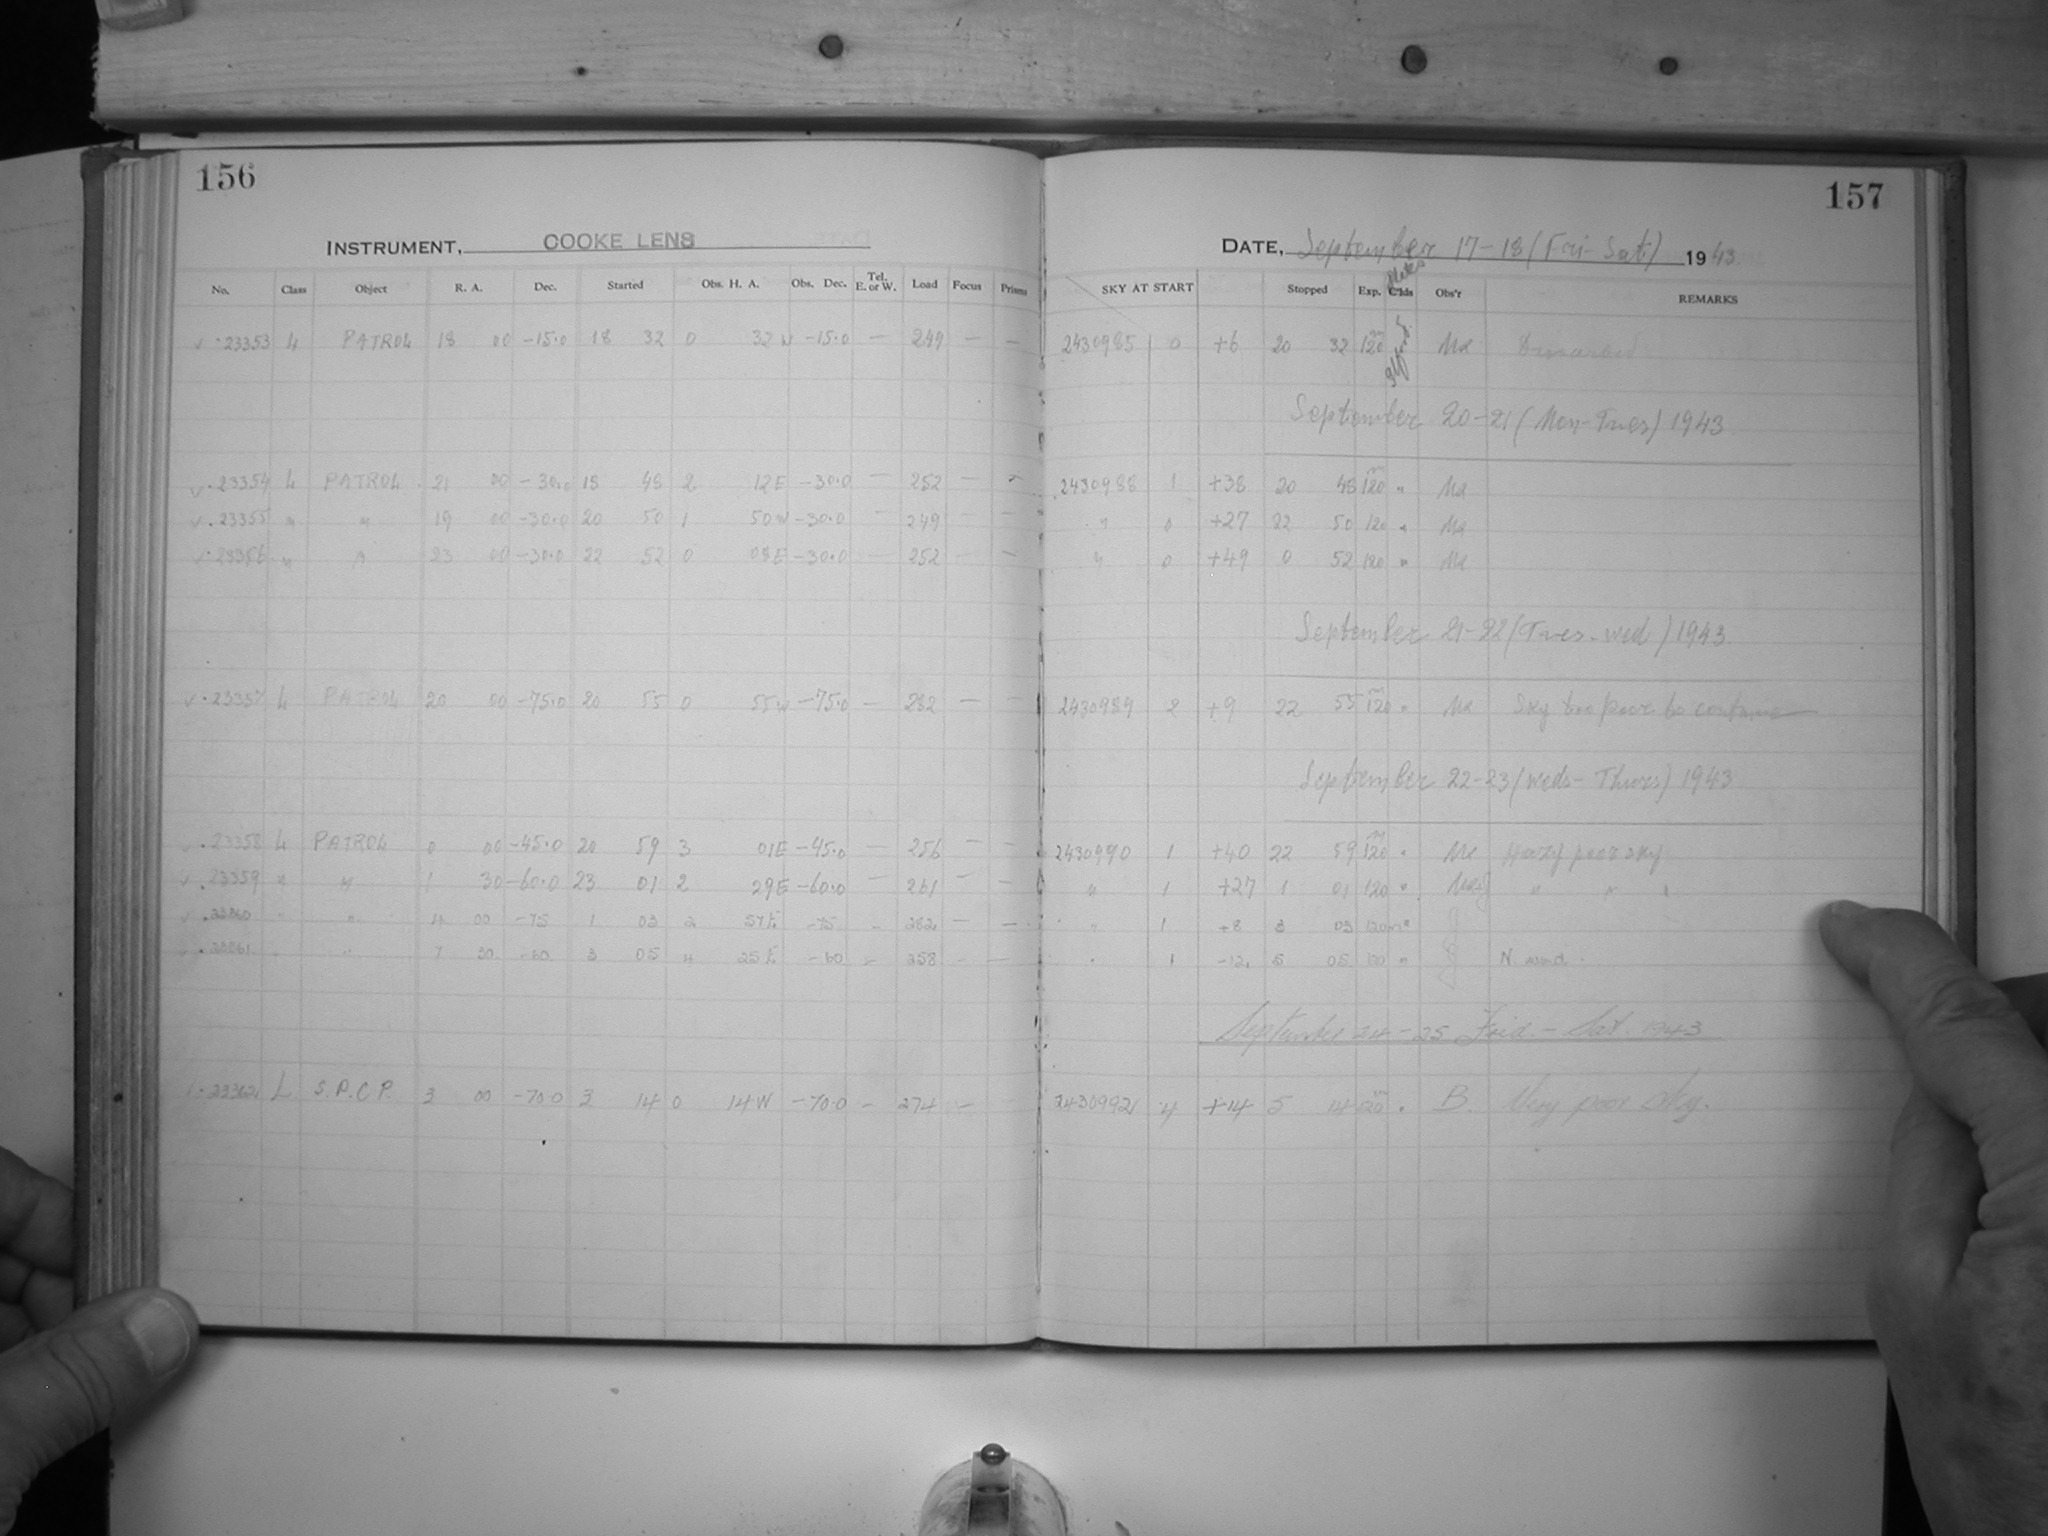 156
157
INSTRUMENT, COOKE LENS
DATE, September 17-18 (Fri-Sat) 1943
No. Class Object R. A. Dec. Started Obs. H. A. Obs. Dec. Tel. E. or W. Load Focus Prisms SKY AT START Stopped Exp. Plates Obs'r REMARKS
23353 L PATROL 18 00 -15.0 18 32 0 32W -15.0 — 249 — — 2430985 1 0 +6 20 32 120m Ma
September 20-21 (Mon-Tues) 1943
23354 L PATROL 21 00 -30.0 18 48 2 12E -30.0 — 252 — — 2430988 1 +38 20 48 120m " Ma
23355 " " 19 00 -30.0 20 50 1 50W -30.0 — 249 — — " 0 +27 22 50 120 " Ma
23356 " " 23 00 -30.0 22 52 0 08E -30.0 — 252 — — " 0 +49 0 52 120 " Ma
September 21-22 (Tues-Wed) 1943
23357 L PATROL 20 00 -75.0 20 55 0 55W -75.0 — 282 — — 2430989 2 +9 22 55 120m " Ma Sky too poor to continue
September 22-23 (Weds-Thurs) 1943
23358 L PATROL 0 00 -45.0 20 59 3 01E -45.0 — 256 — — 2430990 1 +40 22 59 120m " Ma Hazy poor sky
23359 " " 1 30 -60.0 23 01 2 29E -60.0 — 261 — — " 1 +27 1 01 120 " " " "
23360 " " 4 00 -75 1 03 2 57E -75 - 282 — — " 1 +8 3 03 120m
23361 " " 7 30 -60 3 05 4 25E -60 - 258 — — " 1 -12 5 05 120 " N. wind.
September 24-25 Frid.-Sat. 1943
23362 L S.P.C.P. 3 00 -70.0 3 14 0 14W -70.0 - 274 — — 2430992 4 +14 5 14 120m " B. Very poor sky.